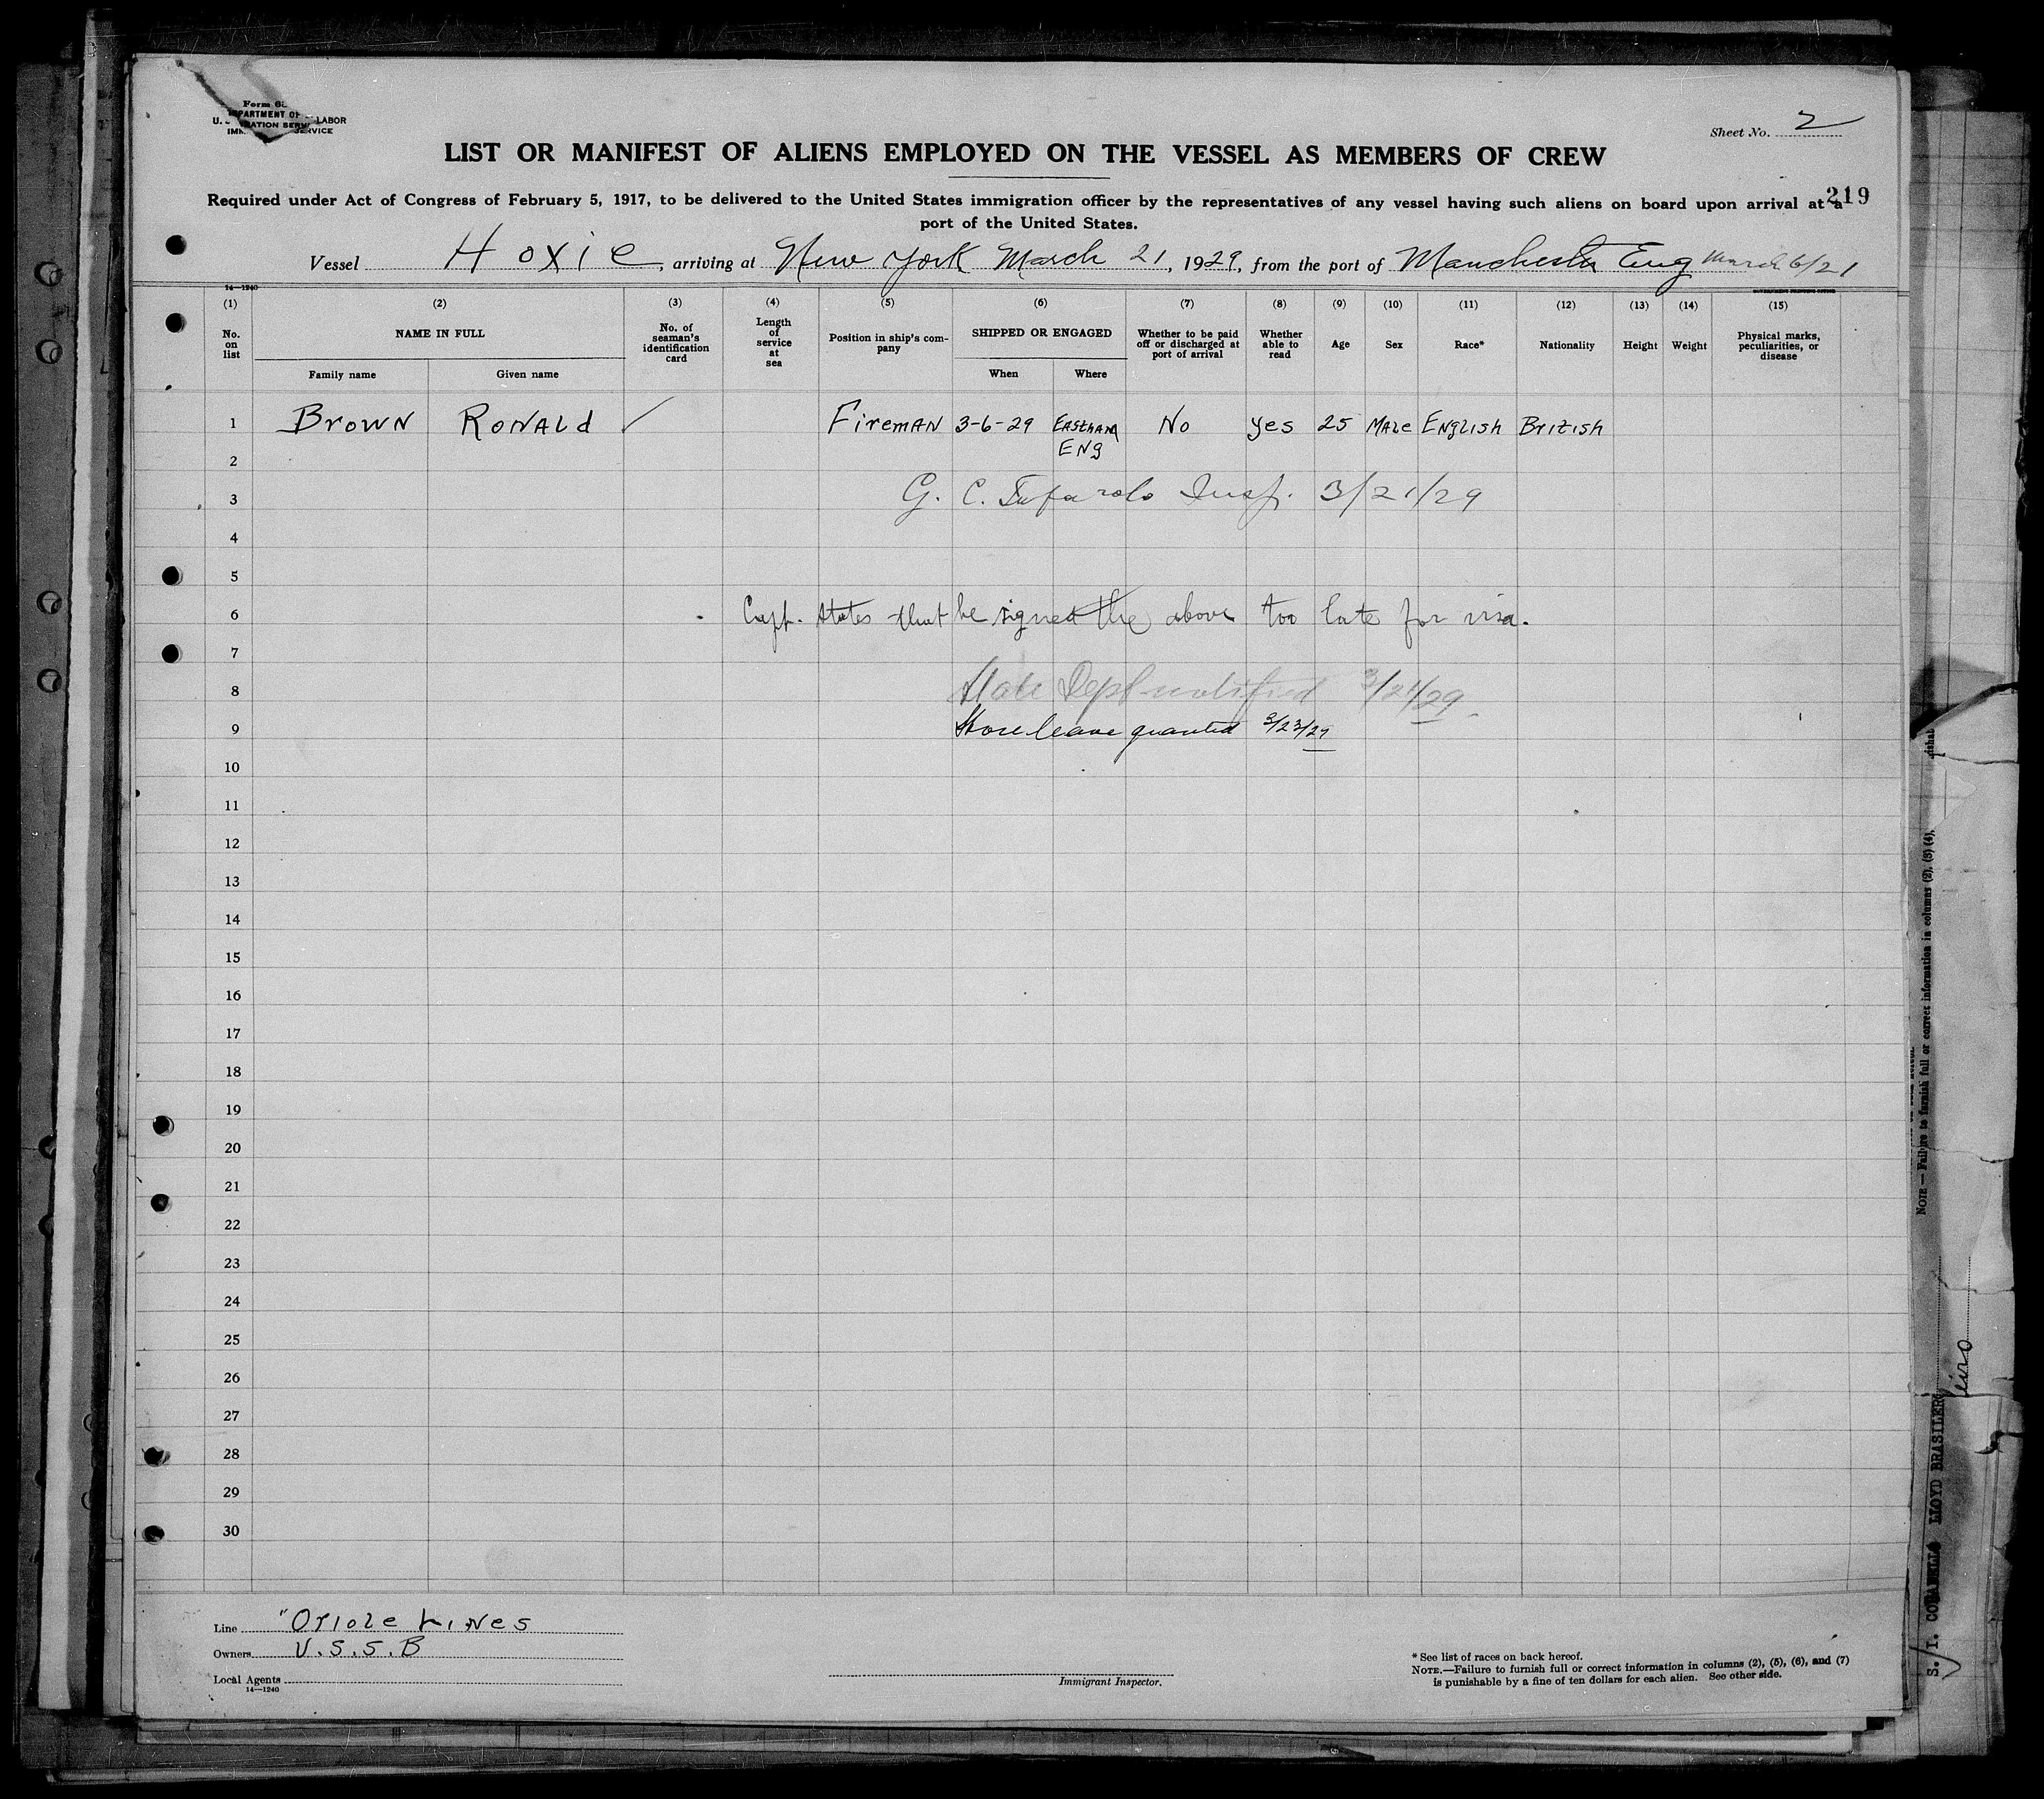 Form 68
U. DEPARTMENT OF LABOR
IMMIGRATION SERVICE
Sheet No. 2
LIST OR MANIFEST OF ALIENS EMPLOYED ON THE VESSEL AS MEMBERS OF CREW
219
Required under Act of Congress of February 5, 1917, to be delivered to the United States immigration officer by the representatives of any vessel having such aliens on board upon arrival at a
port of the United States.
Vessel Hoxie, arriving at New York March 21, 1929, from the port of Manchester Eng March 6/21
14—1240 GOVERNMENT PRINTING OFFICE
(1) (2) (3) (4) (5) (6) (7) (8) (9) (10) (11) (12) (13) (14) (15)
No. on list NAME IN FULL No. of seaman's identification card Length of service at sea Position in ship's company SHIPPED OR ENGAGED Whether to be paid off or discharged at port of arrival Whether able to read Age Sex Race* Nationality Height Weight Physical marks, peculiarities, or disease
Family name Given name When Where
1 Brown Ronald / Fireman 3-6-29 Eastham Eng No yes 25 Male English British
2
3 G. C. Tufarolo Insp. 3/21/29
4
5
6 Capt. states that he signed the above too late for visa.
7
8 State Dept notified 3/21/29
9 Shore leave granted 3/23/29
10
11
12
13
14
15
16
17
18
19
20
21
22
23
24
25
26
27
28
29
30
Line "Oriole Lines
Owners U.S.S.B
Local Agents
14—1240
Immigrant Inspector.
* See list of races on back hereof.
NOTE.—Failure to furnish full or correct information in columns (2), (5), (6), and (7)
is punishable by a fine of ten dollars for each alien. See other side.
NOTE — Failure to furnish full or correct information in columns (2), (3) (4),
LLOYD BRASILER
eiro